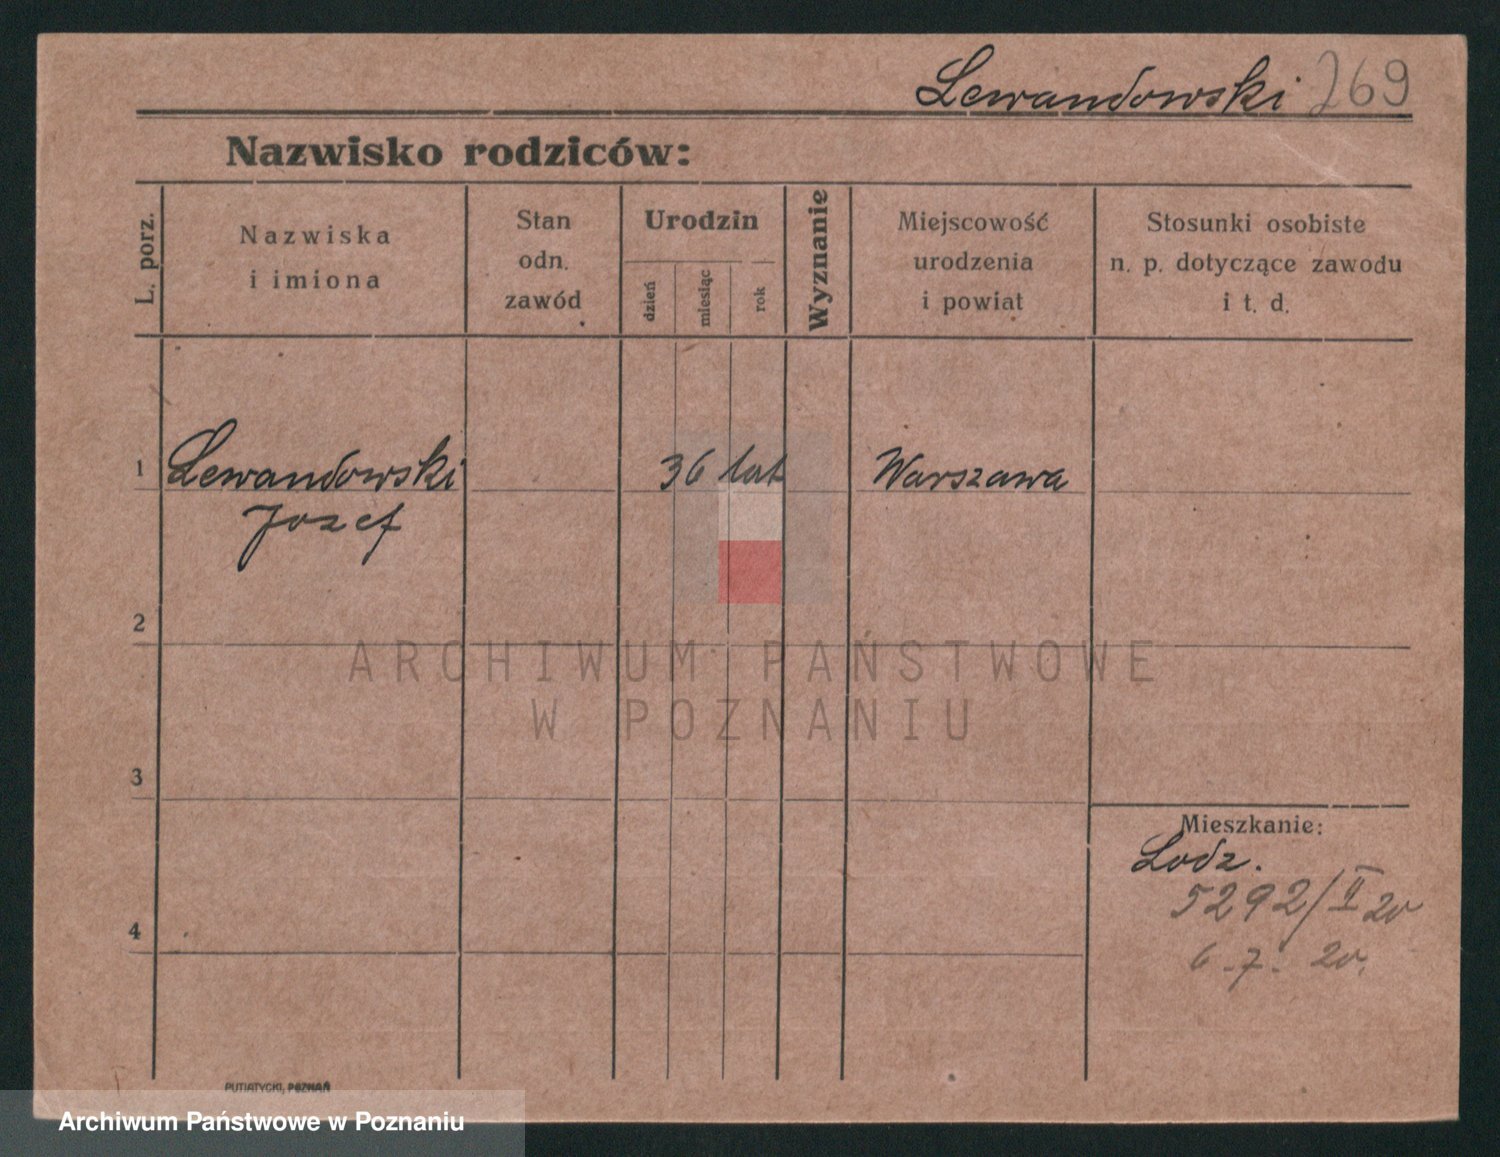 Lewandowski 269
Nazwisko rodziców:
L. porz.
Nazwiska
i imiona
Stan
odn.
zawód
Urodzin
dzień
miesiąc
rok
Wyznanie
Miejscowość
urodzenia
i powiat
Stosunki osobiste
n. p. dotyczące zawodu
i t. d.
1 Lewandowski 36 lat Warszawa
Jozef
2
ARCHIWUM PAŃSTWOWE
W POZNANIU
3
Mieszkanie:
Lodz.
5292/II 20
4
6.7.20.
PUTIATYCKI, POZNAŃ
Archiwum Państwowe w Poznaniu